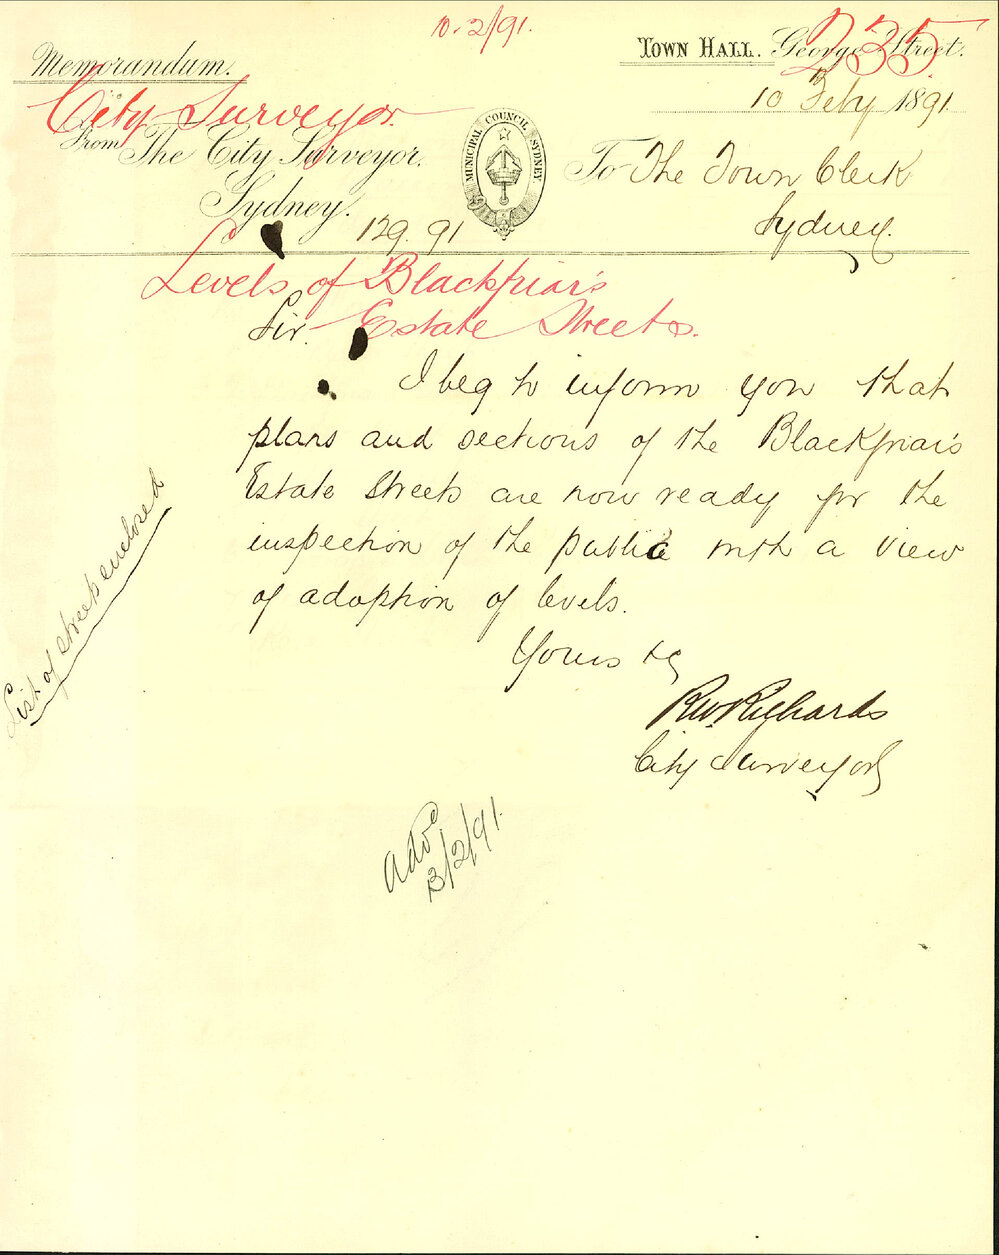 10.2/91.
Town Hall. George Street.
235
Memorandum.
City Surveyor
10 Feby 1891
From The City Surveyor.
Sydney.
MUNICIPAL COUNCIL SYDNEY.
To The Town Clerk
Sydney.
129.91
Levels of Blackfriar's
Estate Streets.
Sir.
I beg to inform you that
plans and sections of the Blackfriar's
Estate Streets are now ready for the
inspection of the public with a view
of adoption of levels.
Yours &c
RW Richards
City Surveyor
List of streets enclosed
Advd
13/2/91.